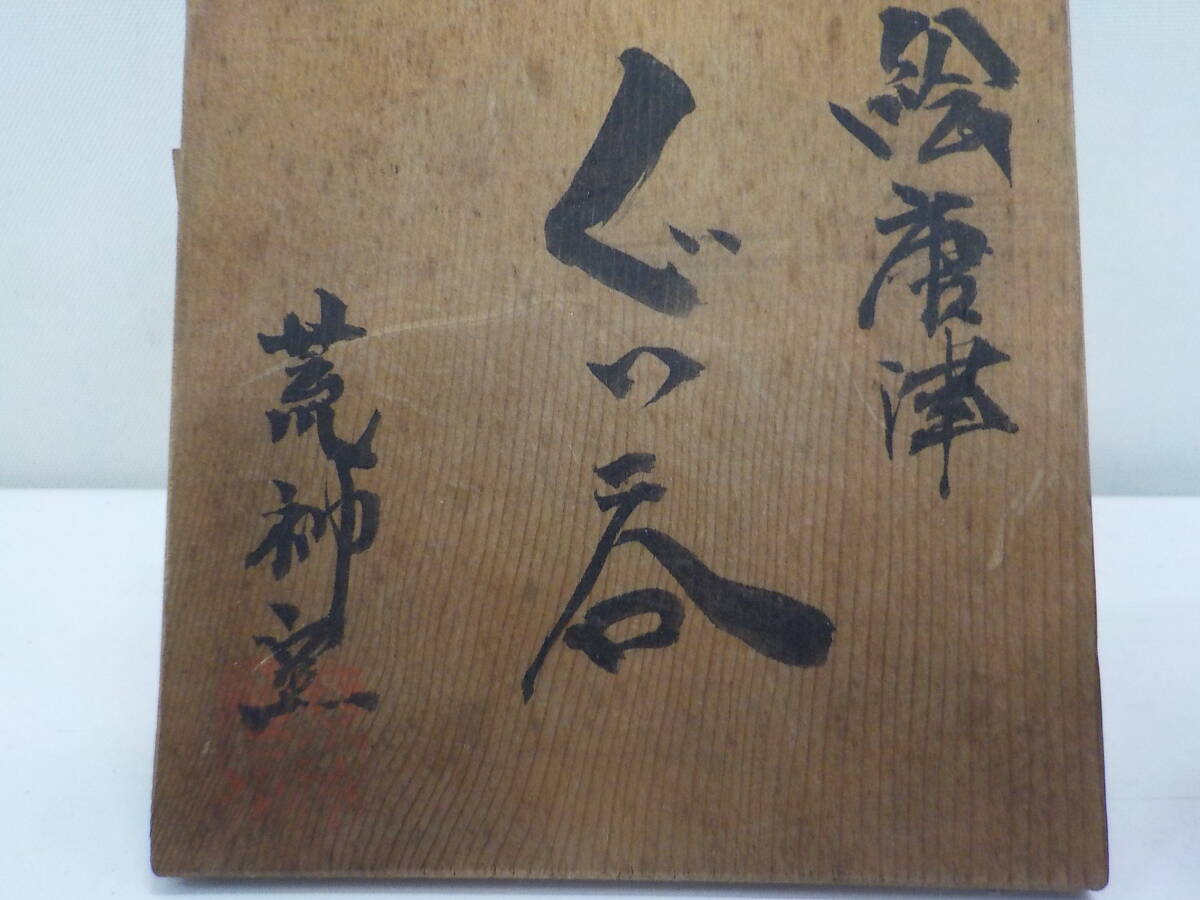 絵唐津
ぐい呑
荒神窯